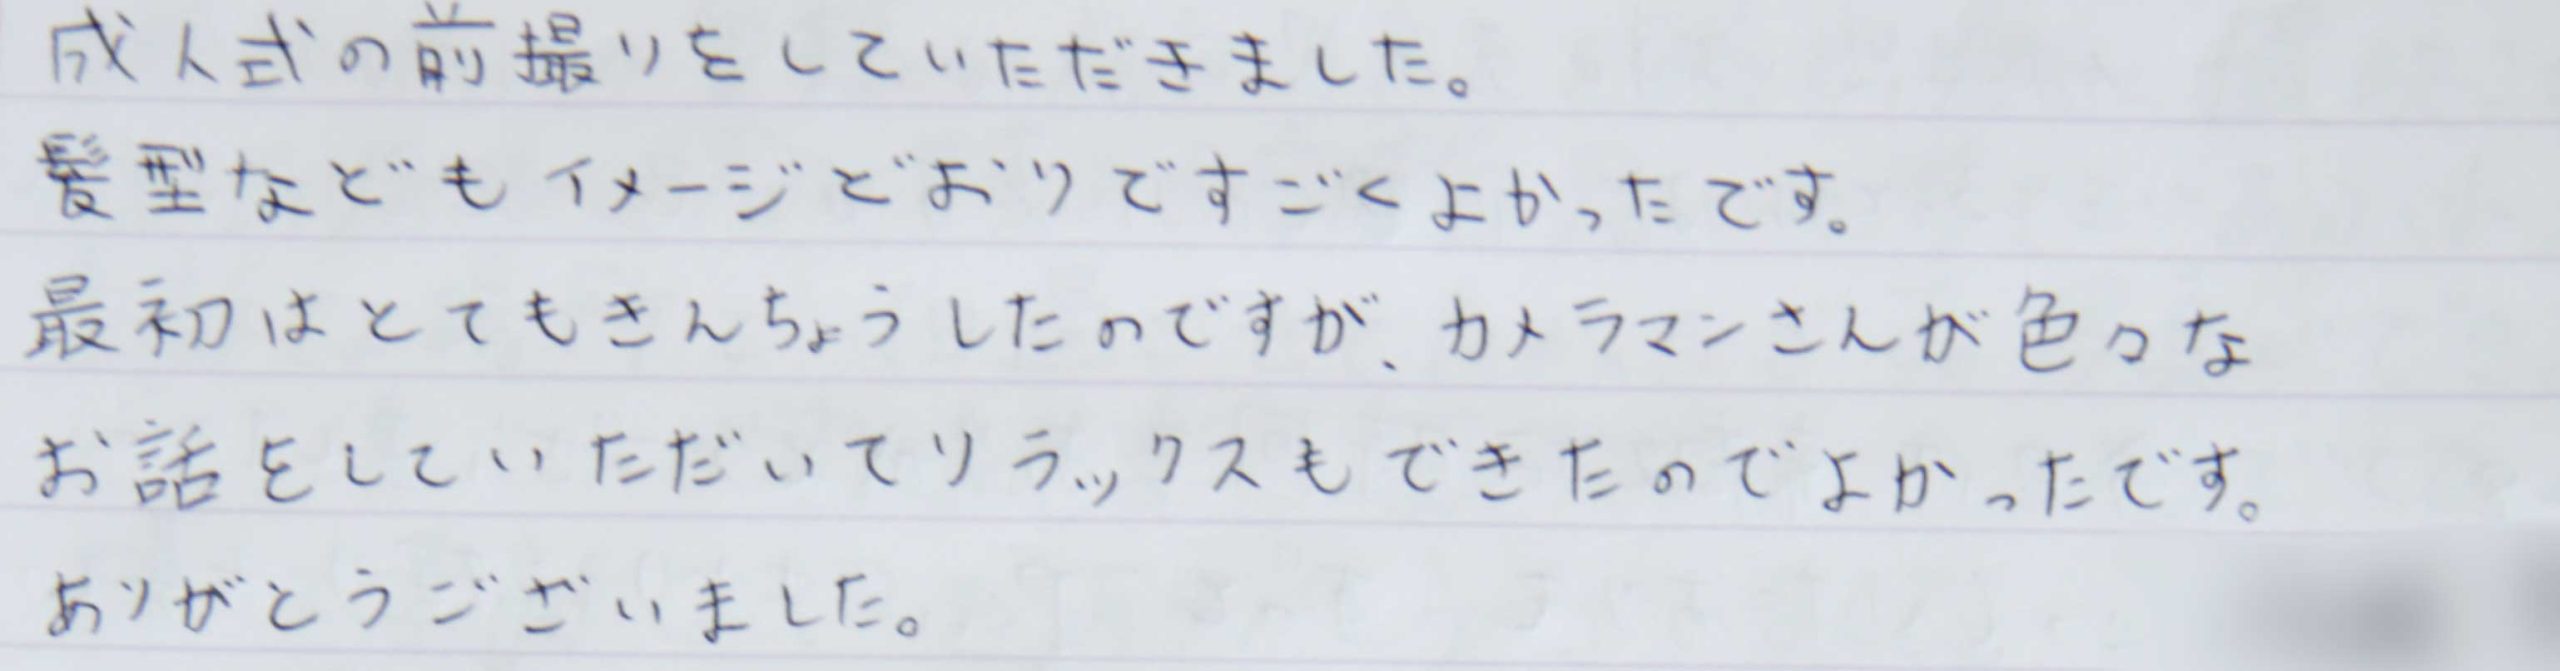 成人式の前撮りをしていただきました。
髪型などもイメージどおりですごくよかったです。
最初はとてもきんちょうしたのですが、カメラマンさんが色々な
お話をしていただいてリラックスもできたのでよかったです。
ありがとうございました。